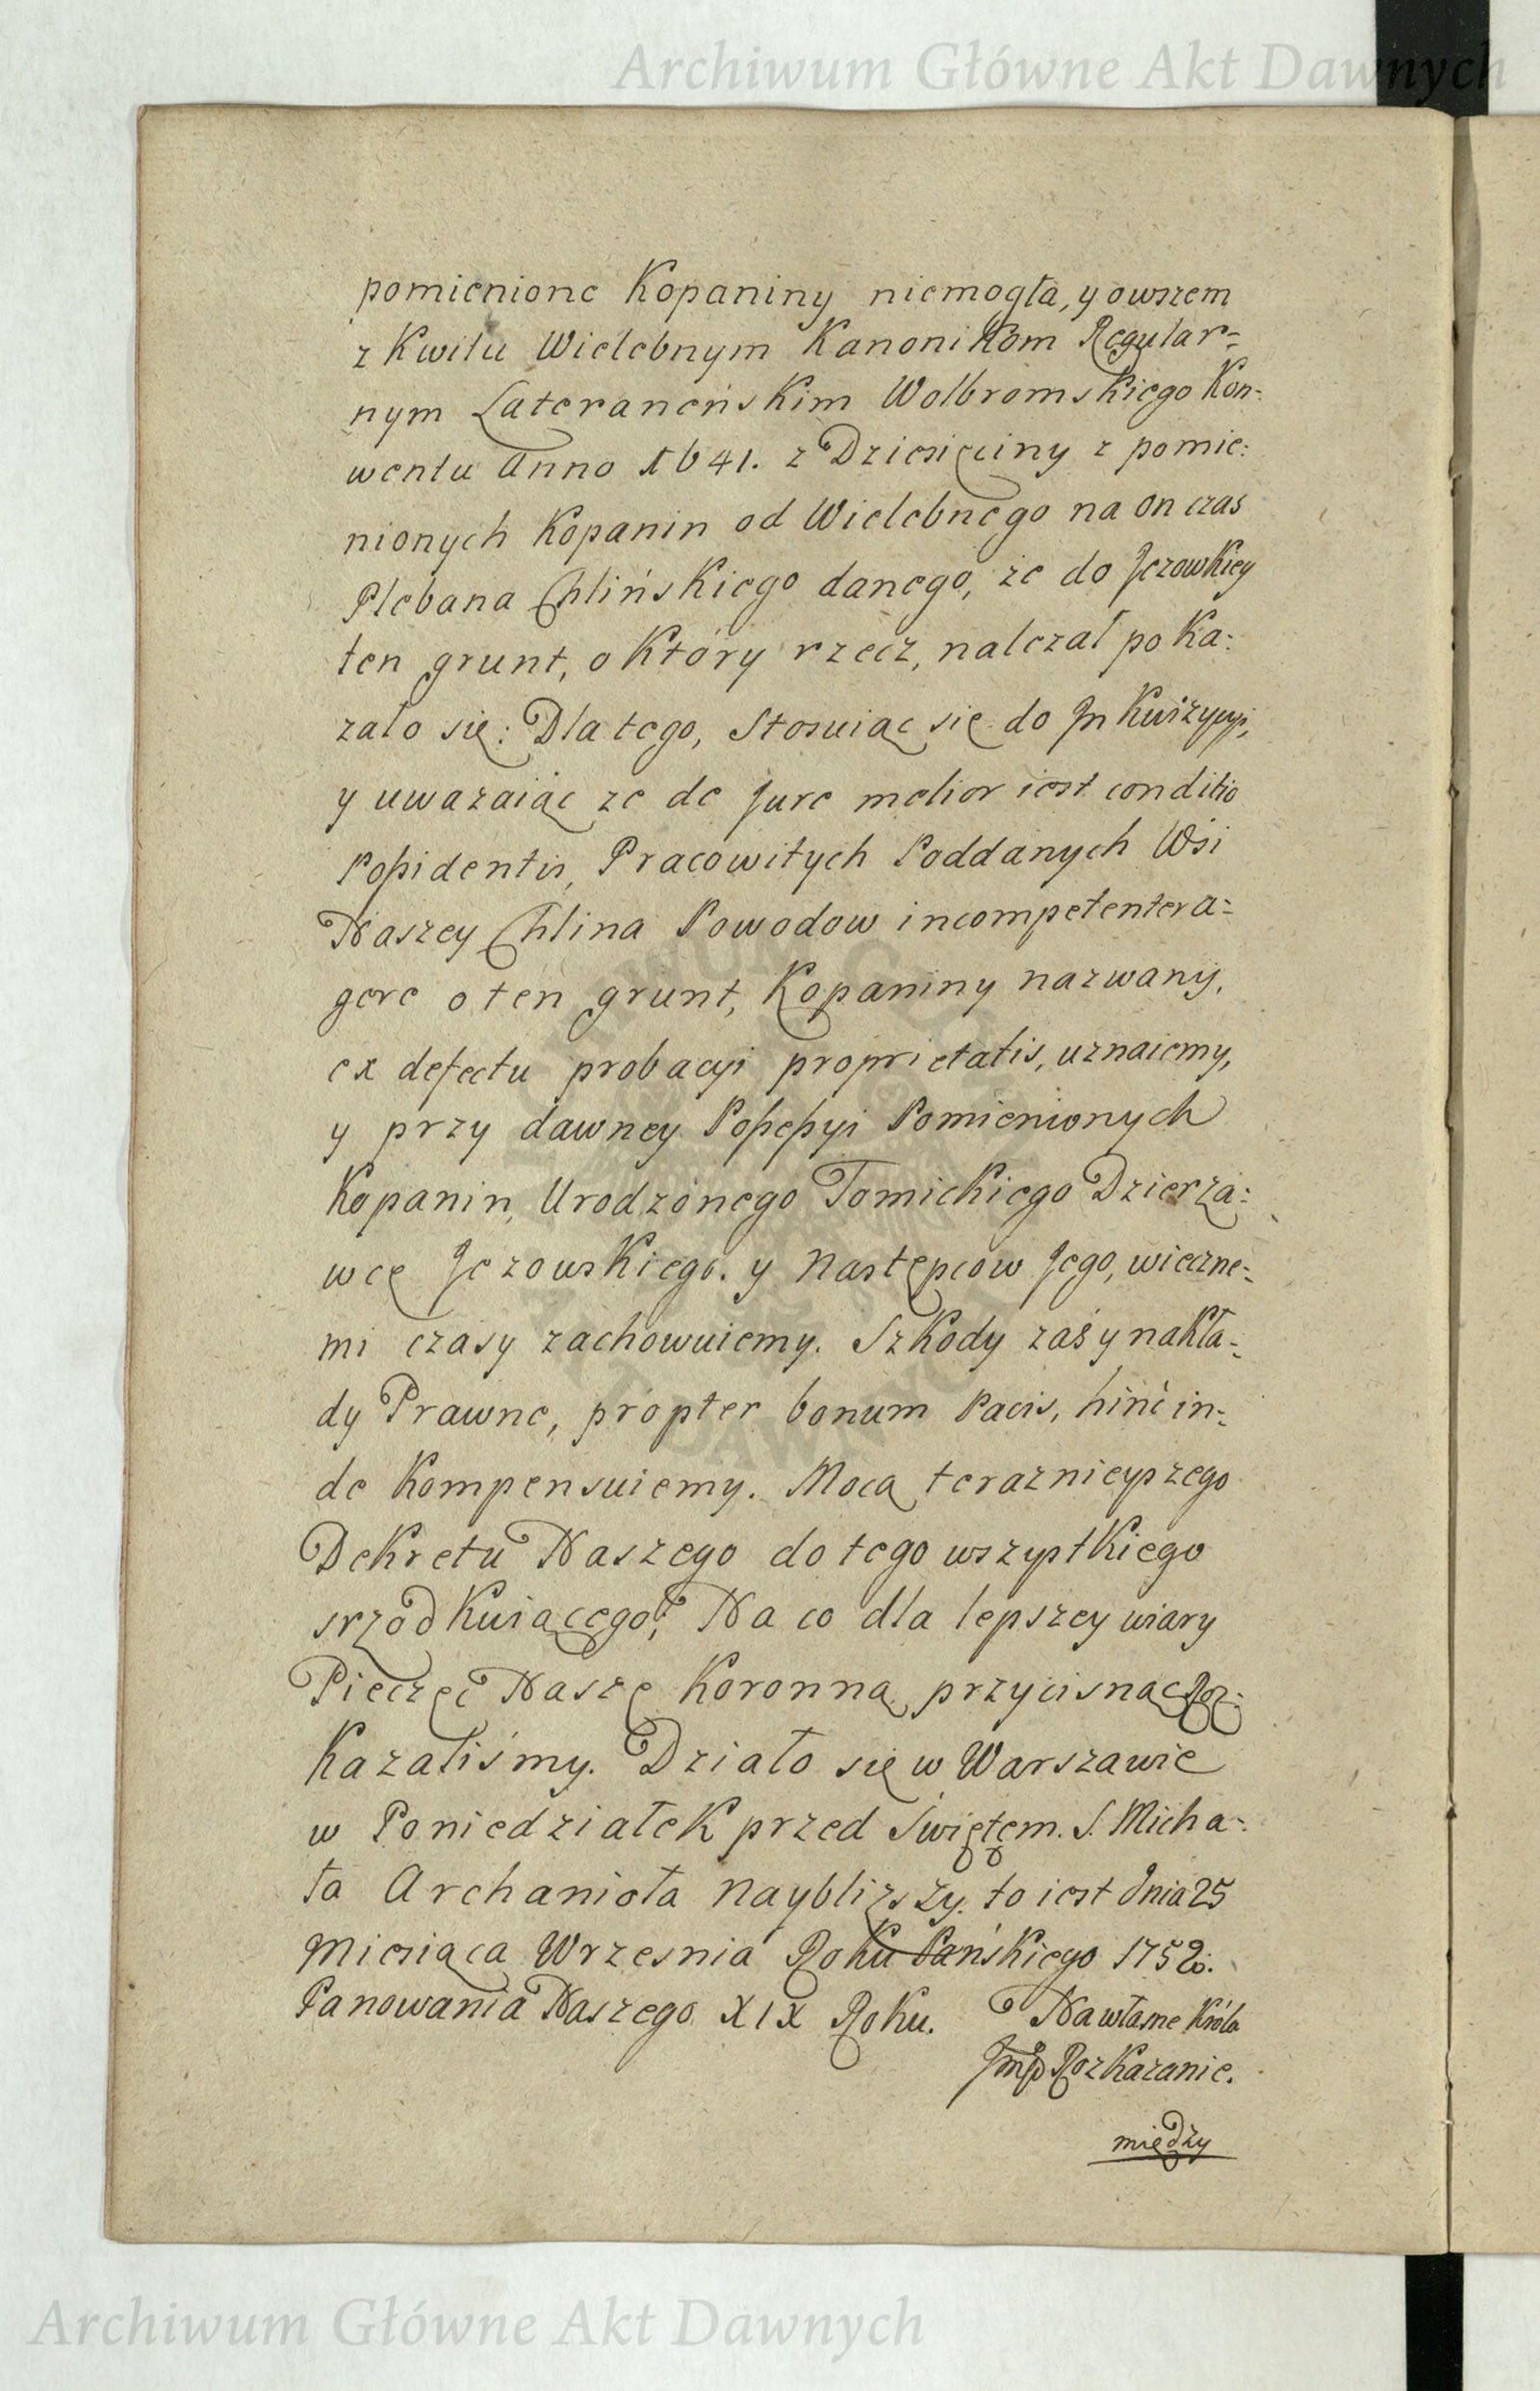 Archiwum Główne Akt Dawnych
pomienione Kopaniny niemogła, y owszem
z Kwitu Wielebnym Kanonikom Regular=
nym Lateraneńskim Wolbromskiego Kon-
wentu Anno 1641. z Dziesięciny z pomie:
nionych Kopanin od Wielebnego na on czas
Plebana Chlińskiego danego, że do Jezowkiey
ten grunt, o Który rzecz, należał poka:
zało się: Dla tego, Stosuiąc się do Inkwizycyi,
y uwazaiąc ze de Jure melior iest conditio
Poßidentis, Pracowitych Poddanych Wsi
Naszey Chlina Powodow incompetenter a=
gere o ten grunt, Kopaniny nazwany,
ex defectu probacyi proprietatis, uznaiemy,
y przy dawney Poßeßyi Pomienionych
Kopanin, Urodzonego Tomickiego Dzierża:
wcę Jezowskiego. y Następcow Jego, wieczne-
mi czasy zachowuiemy. Szkody zaś y nakła-
dy Prawne, propter bonum Pacis, hinc in-
de Kompensuiemy. Mocą teraznieyszego
Dekretu Naszego do tego wszystkiego
srzodkuiącego; Na co dla lepszey wiary
Pieczęć Naszę Koronną przycisnąć Roz:
Kazaliśmy. Działo się w Warszawie
w Poniedziałek przed Swiętem. S. Micha-
ła Archanioła Nayblizszy. to iest dnia 25
Miesiąca Wrzesnia Roku Pańskiego 1752.
Panowania Naszego XIX Roku. Na własne Króla
Jmp Rozkazanie.
między
Archiwum Główne Akt Dawnych